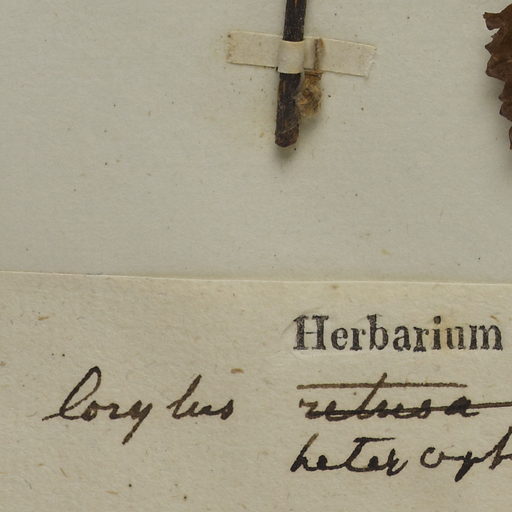 Herbarium
Corylus retusa
heteroph